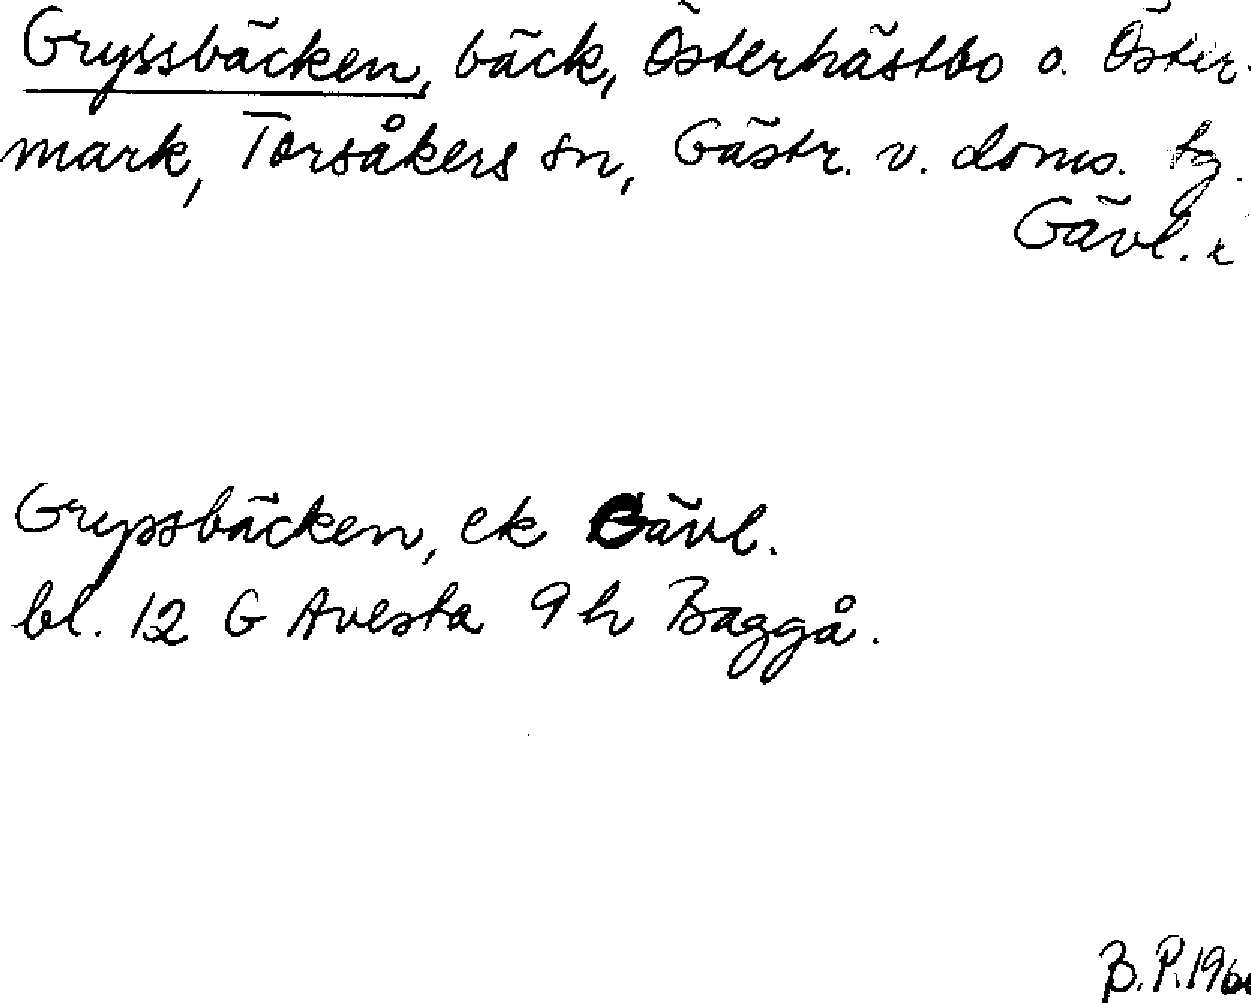 Gryssbäcken, bäck, Österhästbo o. Öster-
mark, Torsåkers sn, Gästr. v. doms. tg.
Gävl.
Gryssbäcken, ek Gävl.
bl. 12 G Avesta 9 h Baggå.
B. P. 196